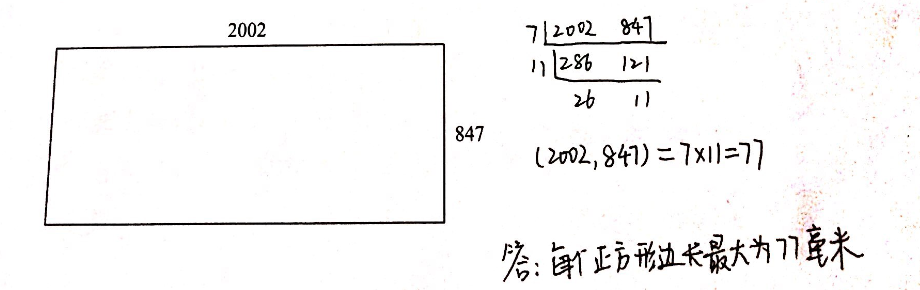 2002
847
7 2002 847
11 286 121
26 11
(2002,847)=7×11=77
答:每个正方形边长最大为77毫米